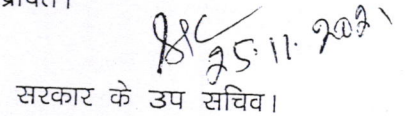 25.11.2021
सरकार के उप सचिव।